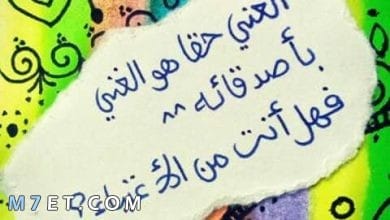 الغني حقا هو الغني
بأصدقائه ^^
فهل أنت من الأغنياء ؟
M7ET.COM